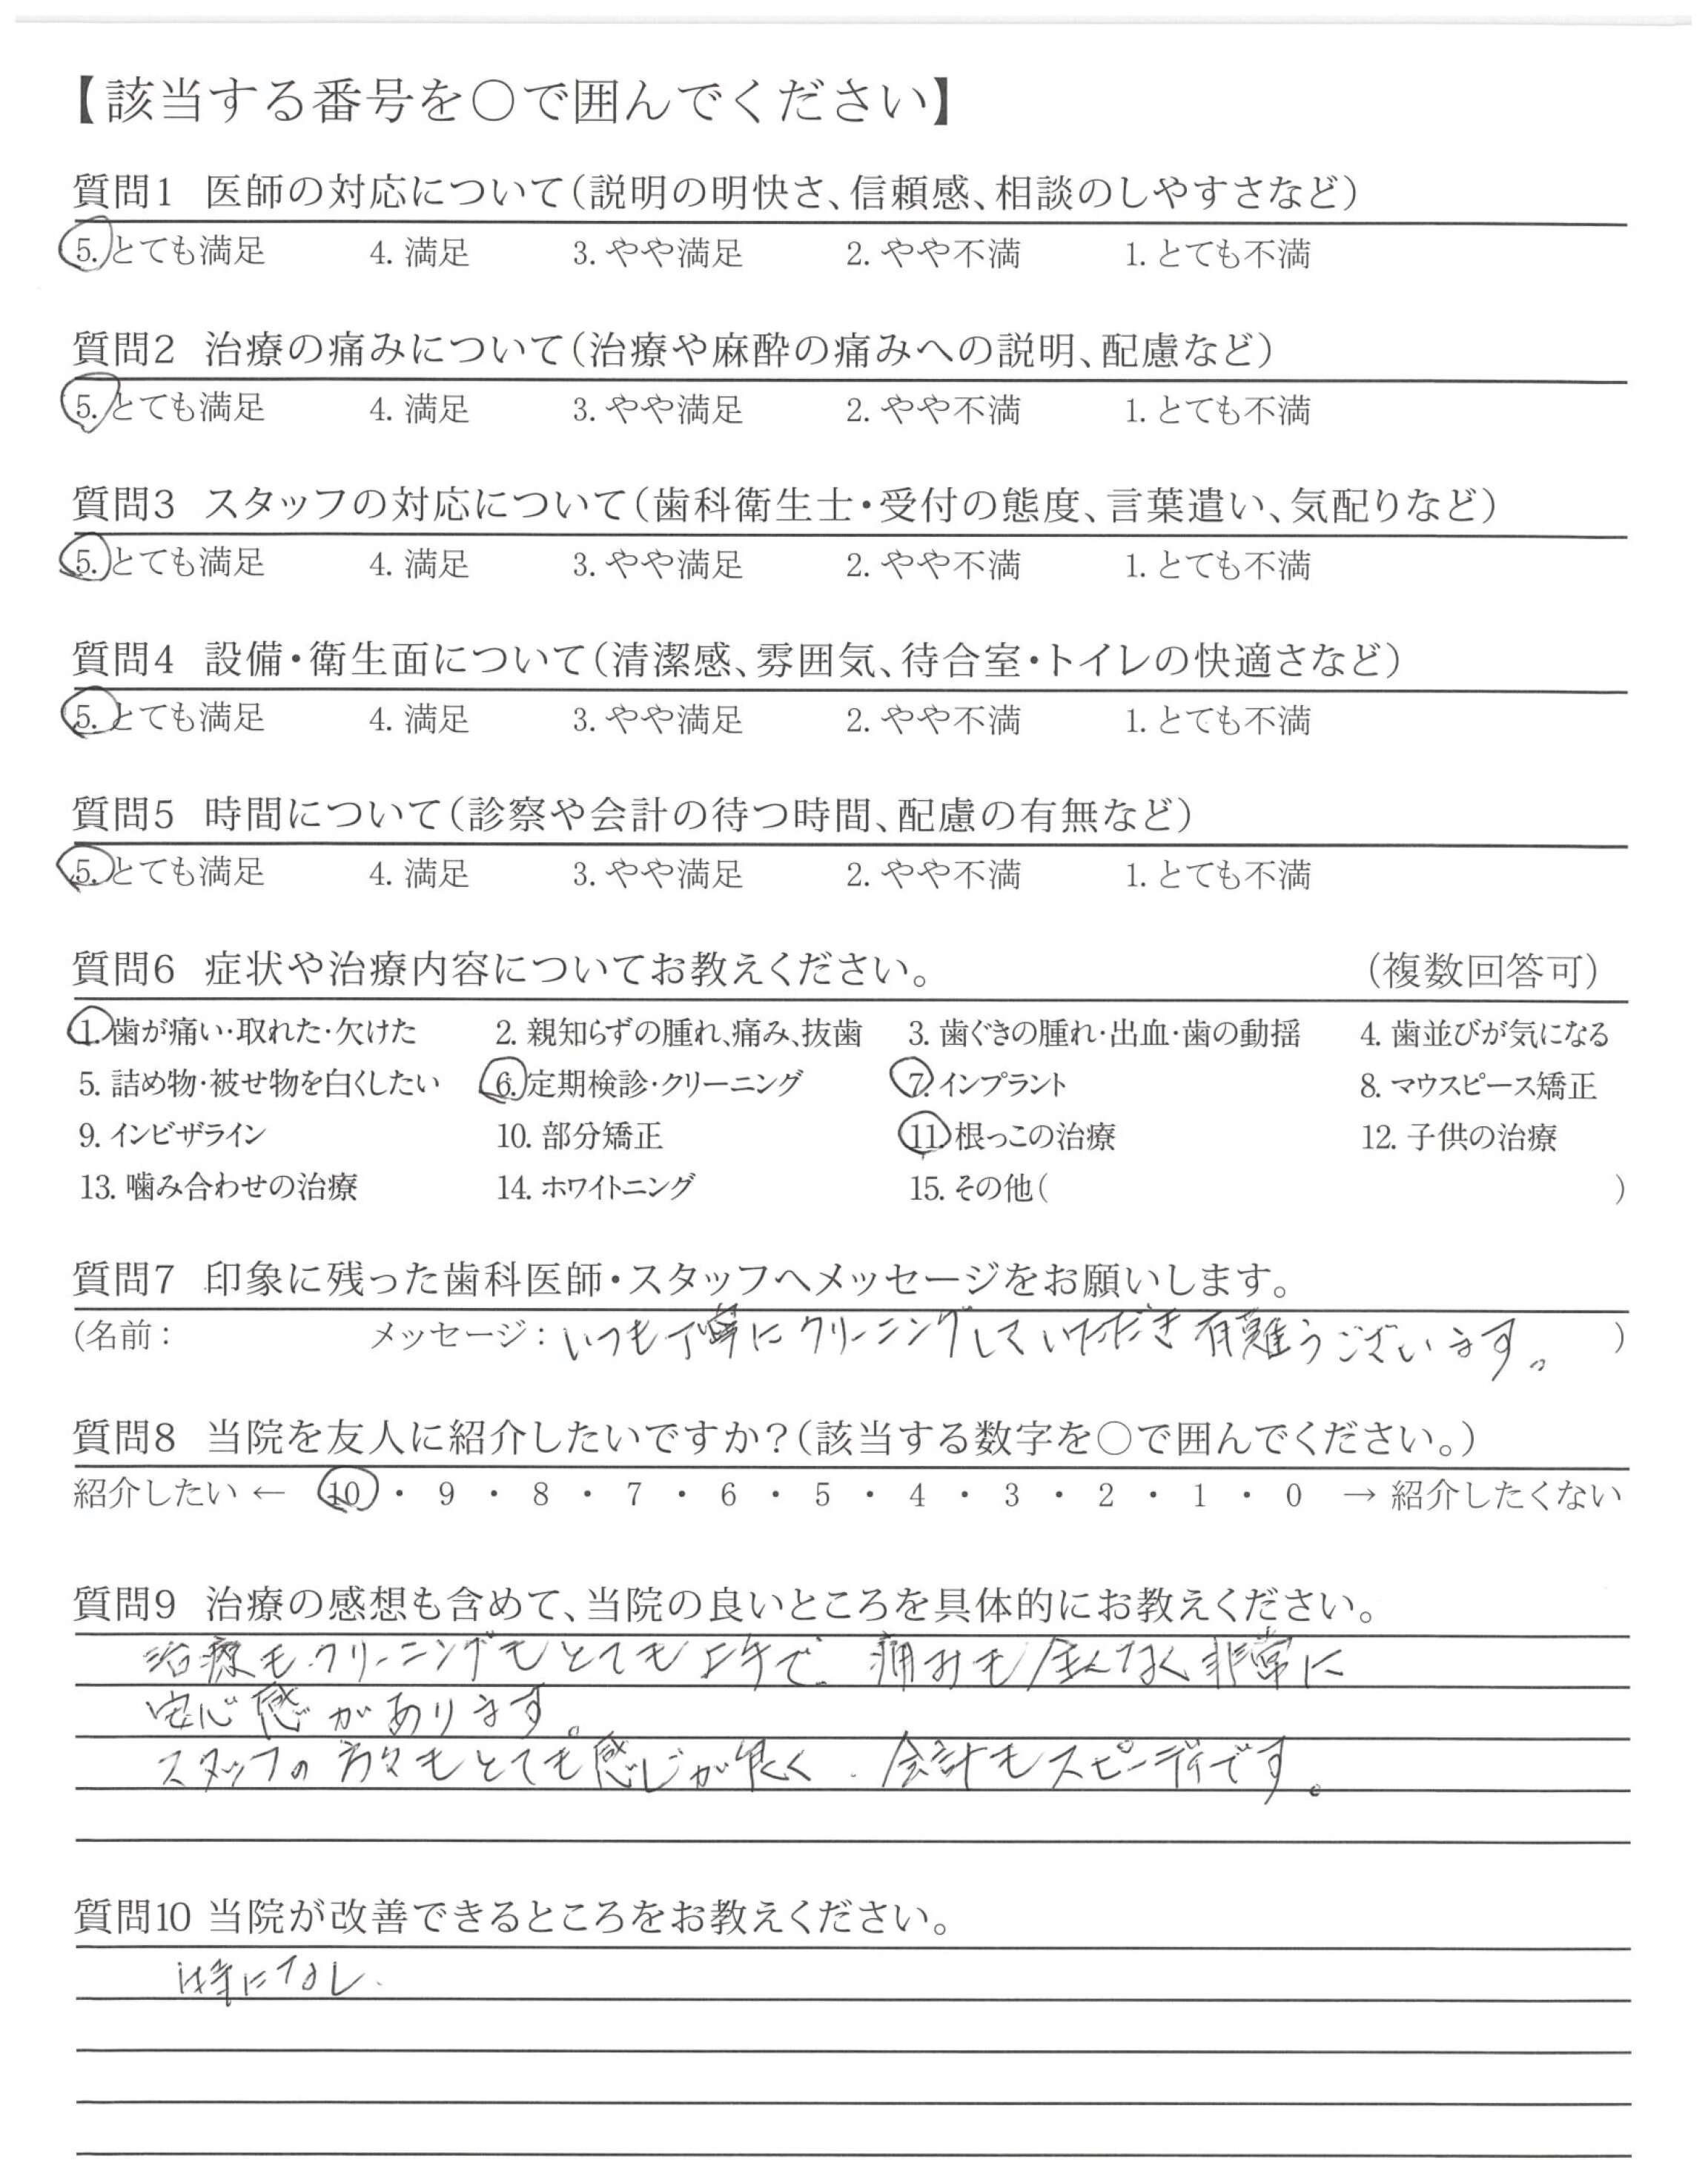 【該当する番号を○で囲んでください】
質問1 医師の対応について(説明の明快さ、信頼感、相談のしやすさなど)
5. とても満足 4. 満足 3. やや満足 2. やや不満 1. とても不満
質問2 治療の痛みについて(治療や麻酔の痛みへの説明、配慮など)
5. とても満足 4. 満足 3. やや満足 2. やや不満 1. とても不満
質問3 スタッフの対応について(歯科衛生士・受付の態度、言葉遣い、気配りなど)
5. とても満足 4. 満足 3. やや満足 2. やや不満 1. とても不満
質問4 設備・衛生面について(清潔感、雰囲気、待合室・トイレの快適さなど)
5. とても満足 4. 満足 3. やや満足 2. やや不満 1. とても不満
質問5 時間について(診察や会計の待つ時間、配慮の有無など)
5. とても満足 4. 満足 3. やや満足 2. やや不満 1. とても不満
質問6 症状や治療内容についてお教えください。 (複数回答可)
1. 歯が痛い・取れた・欠けた 2. 親知らずの腫れ、痛み、抜歯 3. 歯ぐきの腫れ・出血・歯の動揺 4. 歯並びが気になる
5. 詰め物・被せ物を白くしたい 6. 定期検診・クリーニング 7. インプラント 8. マウスピース矯正
9. インビザライン 10. 部分矯正 11. 根っこの治療 12. 子供の治療
13. 噛み合わせの治療 14. ホワイトニング 15. その他( )
質問7 印象に残った歯科医師・スタッフへメッセージをお願いします。
(名前: メッセージ: いつも丁寧にクリーニングしていただき有難うございます。 )
質問8 当院を友人に紹介したいですか?(該当する数字を○で囲んでください。)
紹介したい ← 10 ・ 9 ・ 8 ・ 7 ・ 6 ・ 5 ・ 4 ・ 3 ・ 2 ・ 1 ・ 0 → 紹介したくない
質問9 治療の感想も含めて、当院の良いところを具体的にお教えください。
治療も、クリーニングもとても上手で、痛みも全くなく非常に
安心感があります。
スタッフの方々もとても感じが良く、会計もスピーディです。
質問10 当院が改善できるところをお教えください。
特になし.